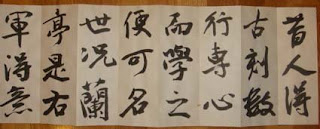 昔人得
古刻數
行專心
而學之
便可名
世況蘭
亭是右
軍得意